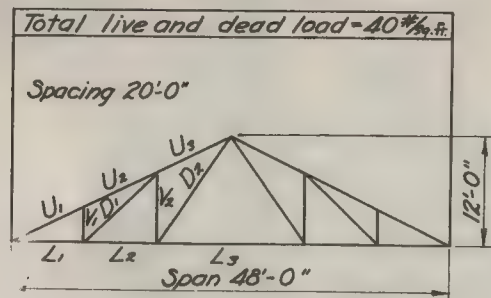 Total live and dead load = 40 #/sq.ft.
Spacing 20'-0"
U3
U2
U1
V1
D1
V2
D2
12'-0"
L1
L2
L3
Span 48'-0"